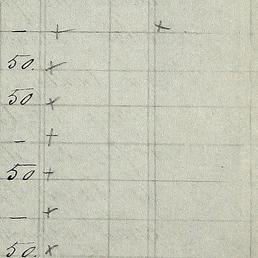 — + +
50. ×
50 ×
— +
50 +
— ×
50. ×